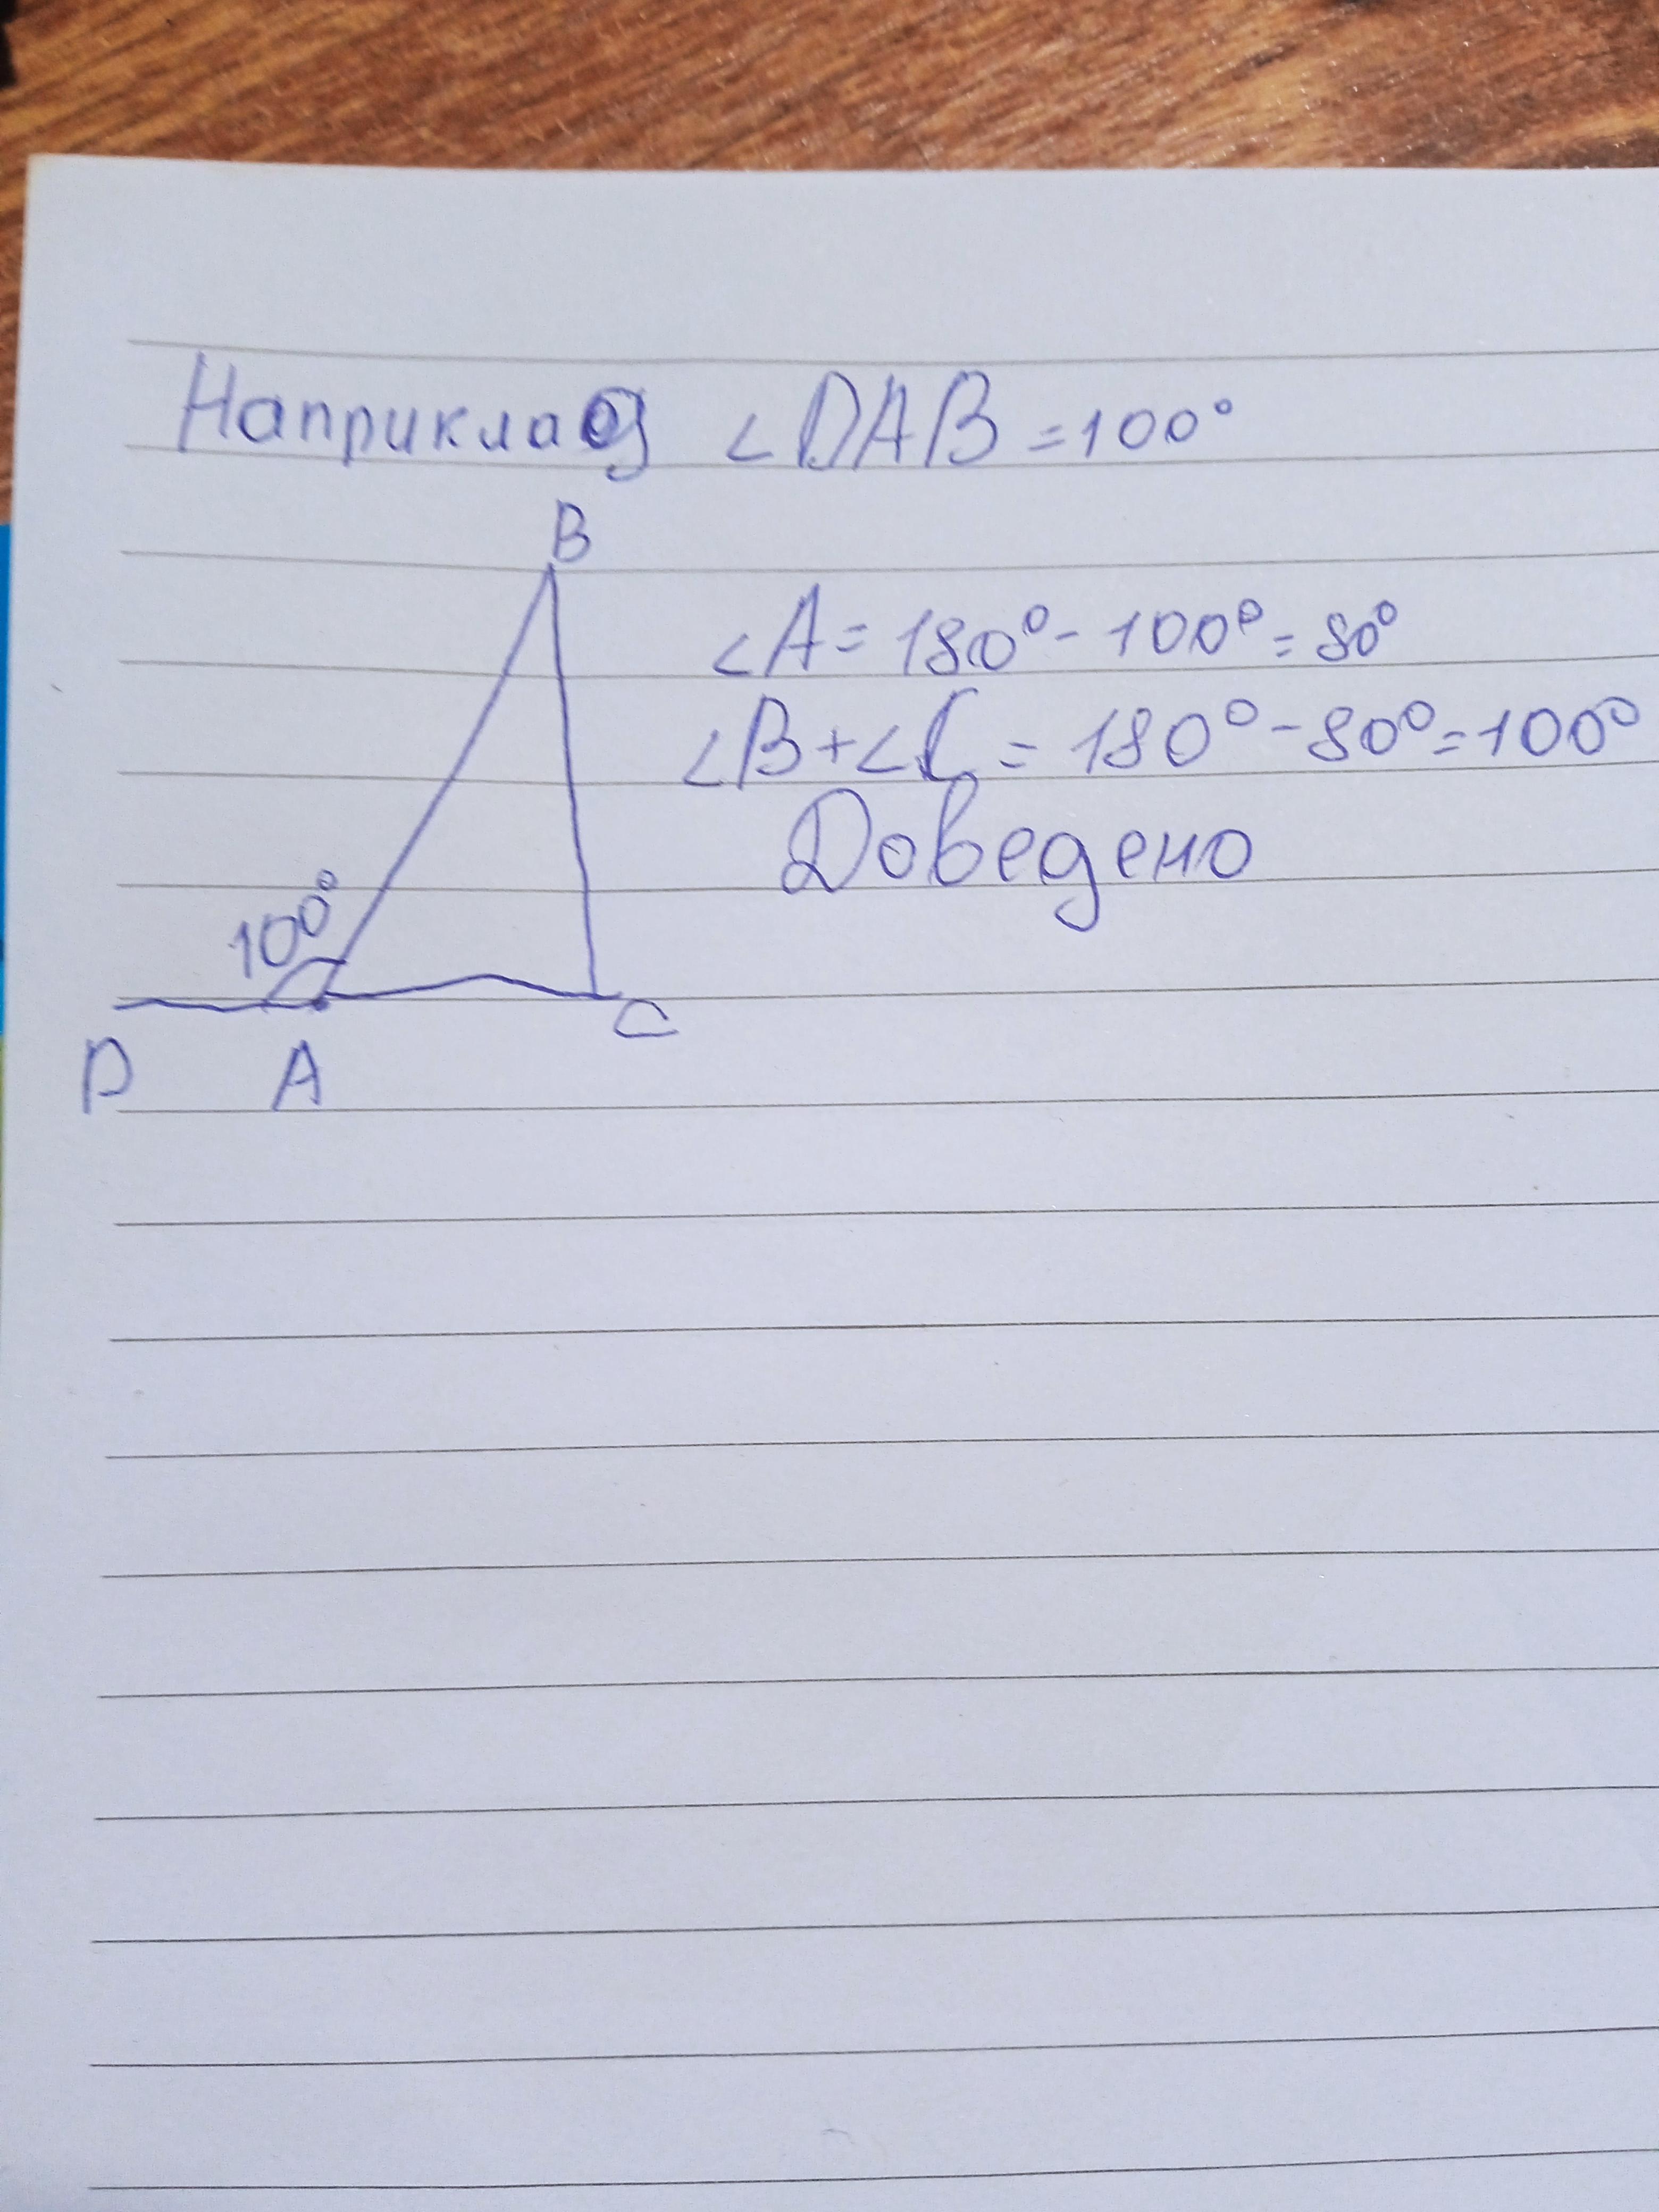 Наприклад ∠DAB = 100°
B
∠A = 180° - 100° = 80°
∠B + ∠C = 180° - 80° = 100°
Доведено
100°
C
D A